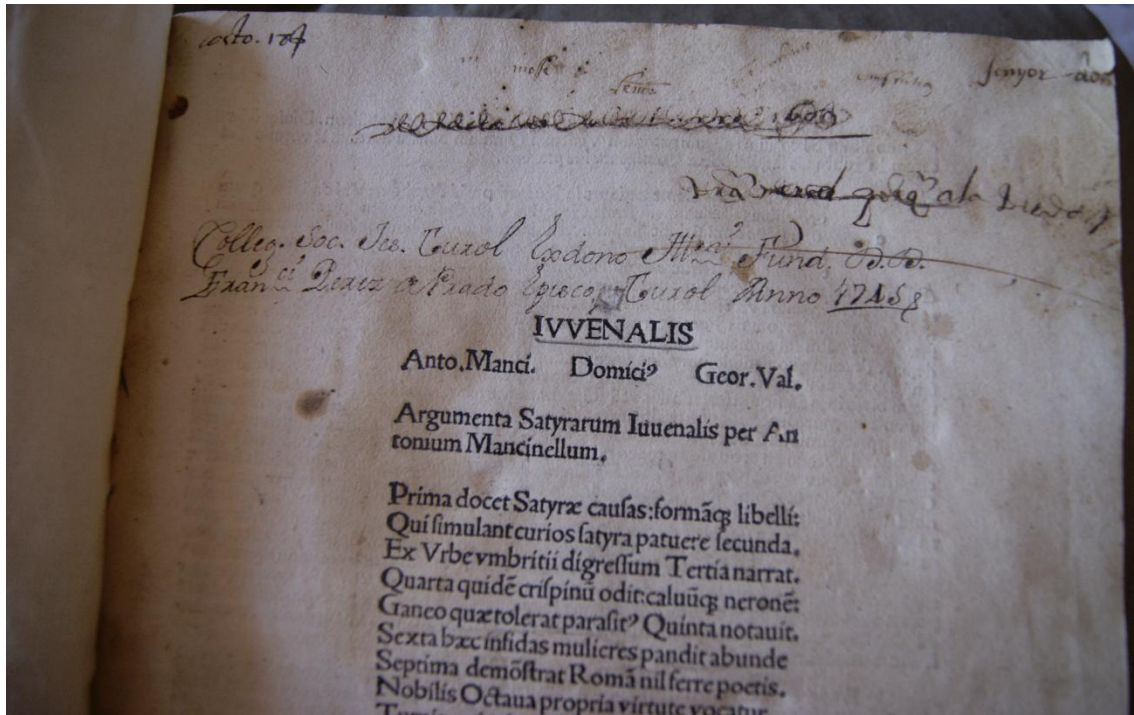 Senyor don
1600
Colleg. Soc. Jes. Turol Ex dono Ill.mi Fund. D.D.
Fran.ci Perez a Prado Episco Turol Anno 1745
IVVENALIS
Anto.Manci. Domiciꝰ Geor.Val.
Argumenta Satyrarum Iuuenalis per An
tonium Mancinellum.
Prima docet Satyræ cauſas:formãqꝫ libelli:
Qui ſimulant curios ſatyra patuere ſecunda.
Ex Vrbe vmbritii digreſſum Tertia narrat.
Quarta quidẽ criſpinũ odit:caluũqꝫ neronẽ:
Ganeo quæ tolerat paraſitꝰ Quinta notauit.
Sexta hæc infidas mulieres pandit abunde
Septima demõſtrat Romã nil ferre poetis.
Nobilis Octaua propria virtute vocatur